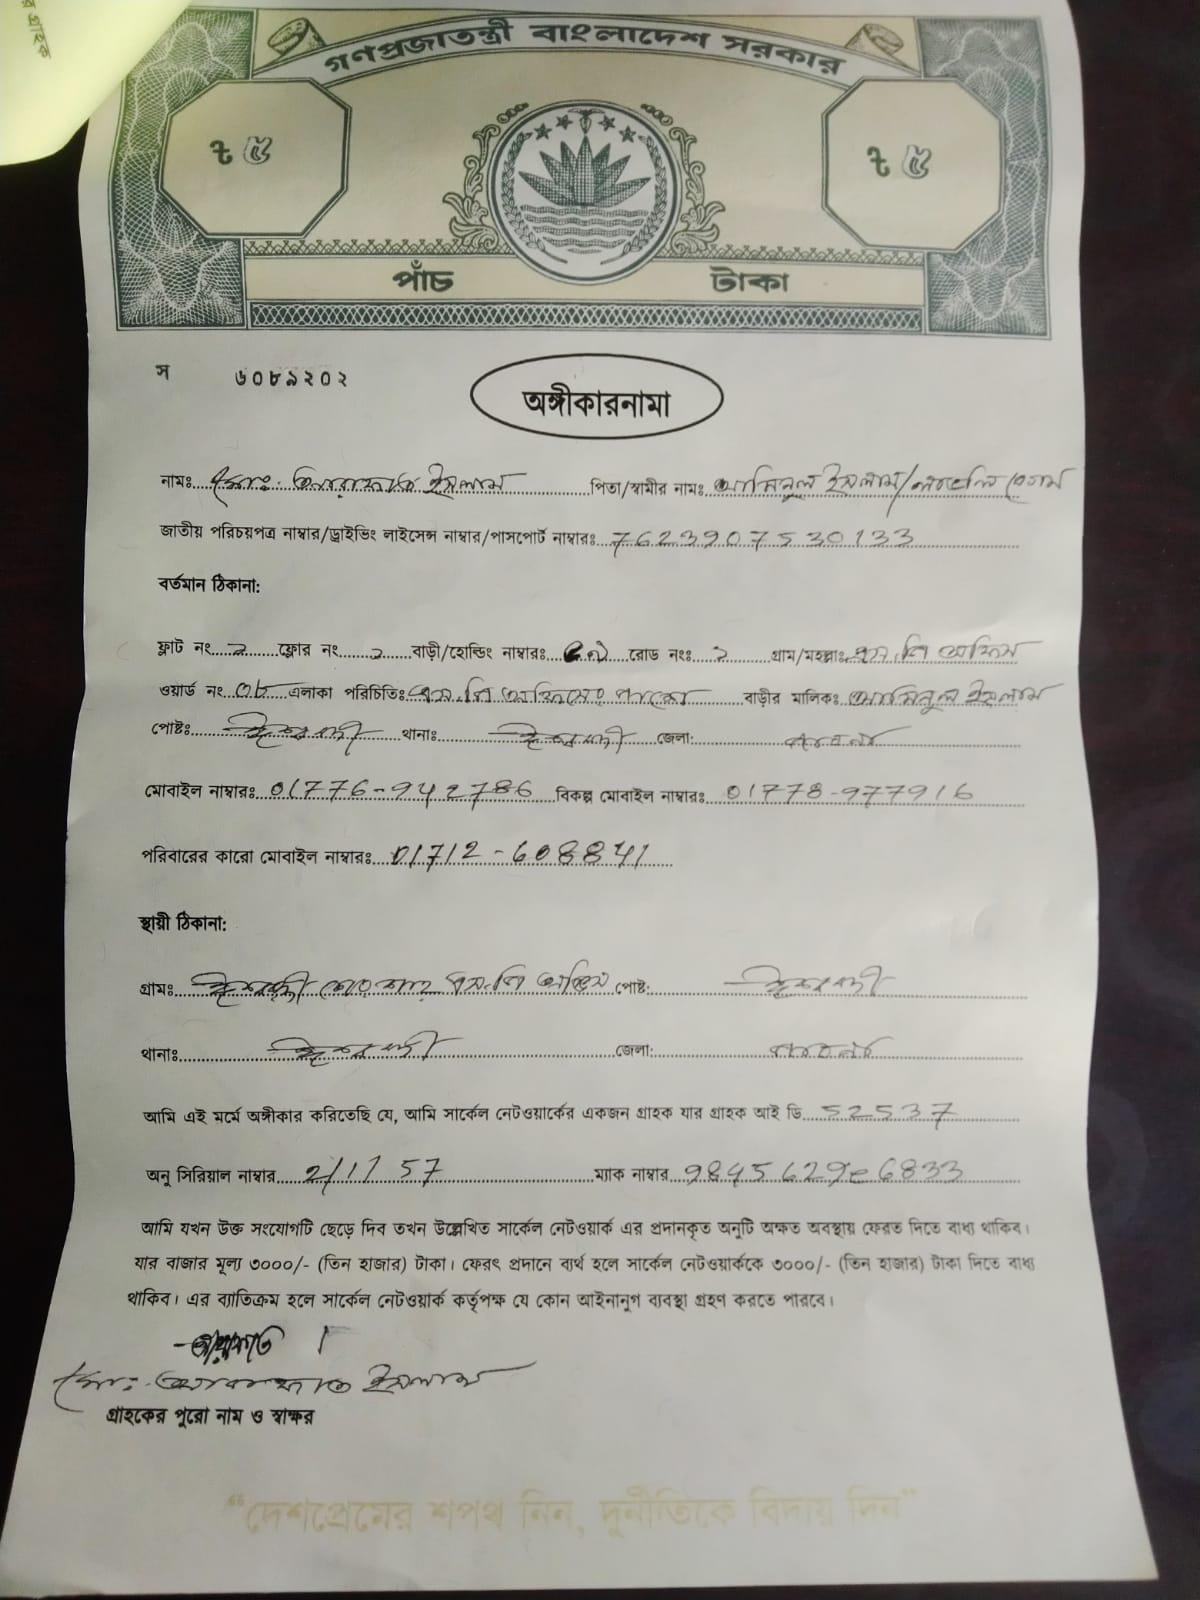 গণপ্রজাতন্ত্রী বাংলাদেশ সরকার
৳ ৫ ৳ ৫
পাঁচ টাকা
স ৬০৮৯২০২
অঙ্গীকারনামা
নামঃ মোঃ আরাফাত ইসলাম পিতা/স্বামীর নামঃ আমিনুল ইসলাম/ বেগম
জাতীয় পরিচয়পত্র নাম্বার/ড্রাইভিং লাইসেন্স নাম্বার/পাসপোর্ট নাম্বারঃ 7623907530133
বর্তমান ঠিকানা:
ফ্লাট নং ফ্লোর নং বাড়ী/হোল্ডিং নাম্বারঃ রোড নংঃ গ্রাম/মহল্লাঃ এস.বি অফিস
ওয়ার্ড নং ০৮ এলাকা পরিচিতিঃ এস.বি অফিসের পাশে বাড়ীর মালিকঃ আমিনুল ইসলাম
পোষ্টঃ ঈশ্বরদী থানাঃ ঈশ্বরদী জেলা: পাবনা
মোবাইল নাম্বারঃ 01776-942786 বিকল্প মোবাইল নাম্বারঃ 01778-977916
পরিবারের কারো মোবাইল নাম্বারঃ 01712-608841
স্থায়ী ঠিকানা:
গ্রামঃ ঈশ্বরদী এস.বি অফিস পোষ্ট: ঈশ্বরদী
থানাঃ ঈশ্বরদী জেলা: পাবনা
আমি এই মর্মে অঙ্গীকার করিতেছি যে, আমি সার্কেল নেটওয়ার্কের একজন গ্রাহক যার গ্রাহক আই ডি 52537
অনু সিরিয়াল নাম্বার ম্যাক নাম্বার 9845629e6833
আমি যখন উক্ত সংযোগটি ছেড়ে দিব তখন উল্লেখিত সার্কেল নেটওয়ার্ক এর প্রদানকৃত অনুটি অক্ষত অবস্থায় ফেরত দিতে বাধ্য থাকিব।
যার বাজার মূল্য ৩০০০/- (তিন হাজার) টাকা। ফেরৎ প্রদানে ব্যর্থ হলে সার্কেল নেটওয়ার্ককে ৩০০০/- (তিন হাজার) টাকা দিতে বাধ্য
থাকিব। এর ব্যাতিক্রম হলে সার্কেল নেটওয়ার্ক কর্তৃপক্ষ যে কোন আইনানুগ ব্যবস্থা গ্রহণ করতে পারবে।
আরাফাত
মোঃ আরাফাত ইসলাম
গ্রাহকের পুরো নাম ও স্বাক্ষর
"দেশপ্রেমের শপথ নিন, দুর্নীতিকে বিদায় দিন"